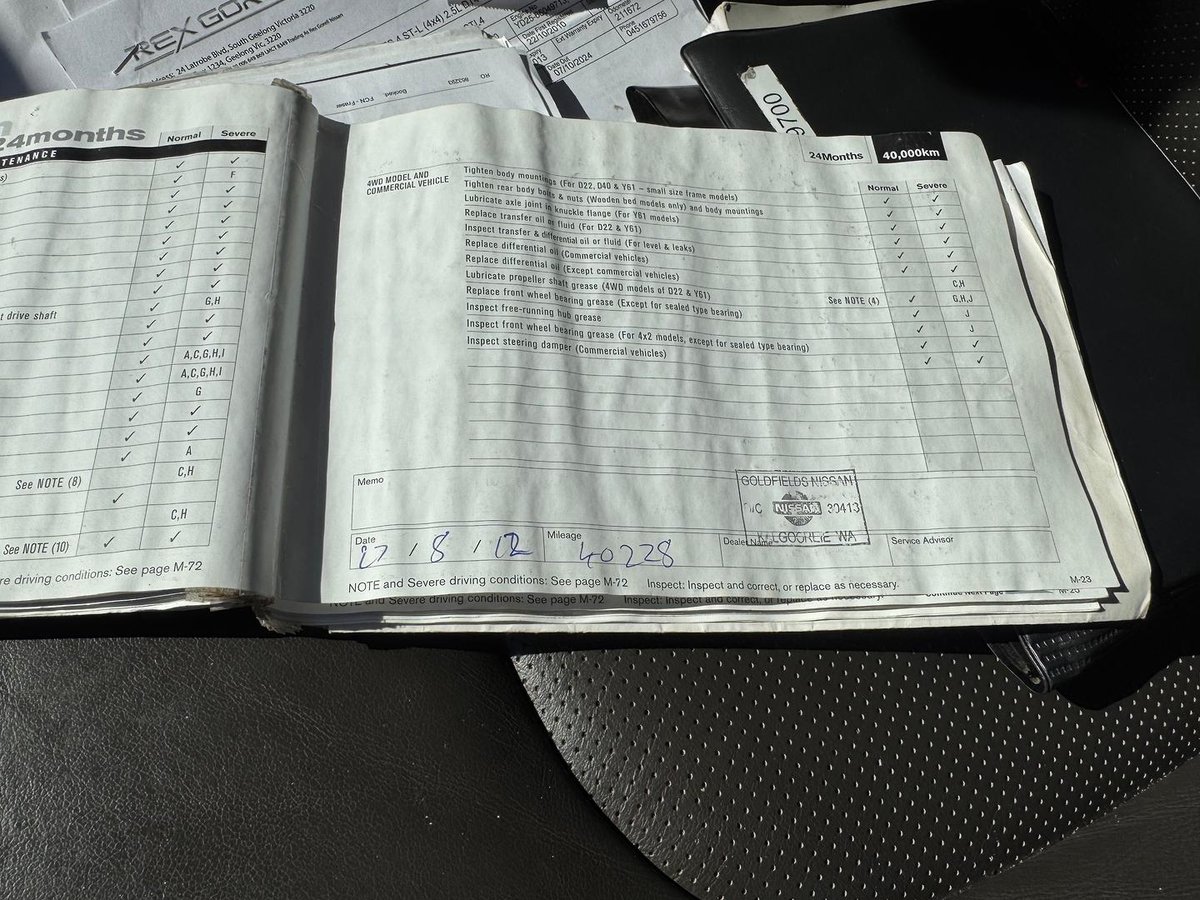 REX GOR
24 Latrobe Blvd, South Geelong Victoria 3220
1234, Geelong Vic, 3220
ST-L (4x4) 2.5L
22/10/2010
Ext Warranty Expiry
013
Date Out
07/10/2024
211672
Phone
0451679756
Docket: FCN - Fraser
RO:
9700
24months
Normal Severe
TENANCE
✓ ✓
✓ F
✓ ✓
✓ ✓
✓ ✓
✓ ✓
✓ ✓
✓ ✓
✓ G,H
t drive shaft ✓ ✓
✓ ✓
✓ A,C,G,H,I
✓ A,C,G,H,I
✓ G
✓ ✓
✓ ✓
✓ A
See NOTE (8) C,H
✓
C,H
See NOTE (10) ✓ ✓
re driving conditions: See page M-72
24Months 40,000km
4WD MODEL AND
COMMERCIAL VEHICLE
Normal Severe
Tighten body mountings (For D22, D40 & Y61 – small size frame models) ✓ ✓
Tighten rear body bolts & nuts (Wooden bed models only) and body mountings ✓ ✓
Lubricate axle joint in knuckle flange (For Y61 models) ✓ ✓
Replace transfer oil or fluid (For D22 & Y61) ✓ ✓
Inspect transfer & differential oil or fluid (For level & leaks) ✓ ✓
Replace differential oil (Commercial vehicles) C,H
Replace differential oil (Except commercial vehicles) See NOTE (4) ✓ G,H,J
Lubricate propeller shaft grease (4WD models of D22 & Y61) ✓ J
Replace front wheel bearing grease (Except for sealed type bearing) ✓ J
Inspect free-running hub grease ✓ ✓
Inspect front wheel bearing grease (For 4x2 models, except for sealed type bearing) ✓ ✓
Inspect steering damper (Commercial vehicles)
Memo
GOLDFIELDS NISSAN
NISSAN 30413
KALGOORLIE WA
Date / 8 / 12
Mileage 40228
Dealer Name
Service Advisor
NOTE and Severe driving conditions: See page M-72 Inspect: Inspect and correct, or replace as necessary.
M-23
NOTE and Severe driving conditions: See page M-72 Inspect: Inspect and correct, or replace as necessary.